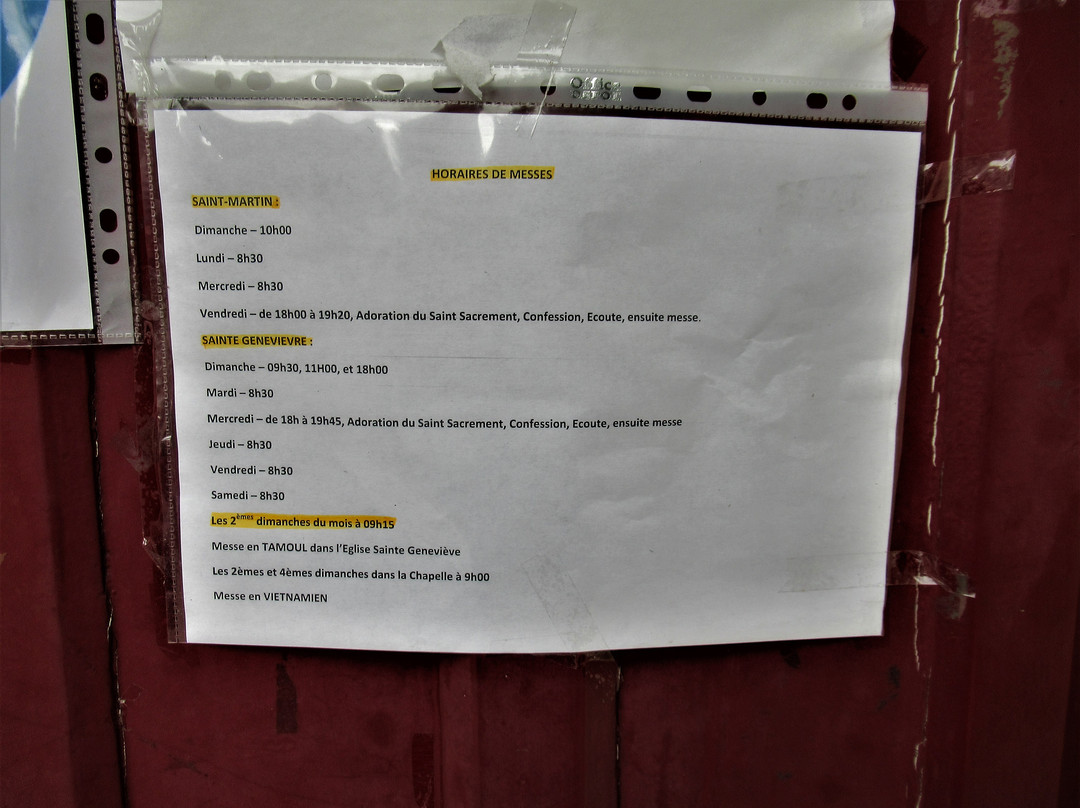 Office
DEPOT
HORAIRES DE MESSES
SAINT-MARTIN :
Dimanche – 10h00
Lundi – 8h30
Mercredi – 8h30
Vendredi – de 18h00 à 19h20, Adoration du Saint Sacrement, Confession, Ecoute, ensuite messe.
SAINTE GENEVIEVRE :
Dimanche – 09h30, 11H00, et 18h00
Mardi – 8h30
Mercredi – de 18h à 19h45, Adoration du Saint Sacrement, Confession, Ecoute, ensuite messe
Jeudi – 8h30
Vendredi – 8h30
Samedi – 8h30
Les 2èmes dimanches du mois à 09h15
Messe en TAMOUL dans l'Eglise Sainte Geneviève
Les 2èmes et 4èmes dimanches dans la Chapelle à 9h00
Messe en VIETNAMIEN